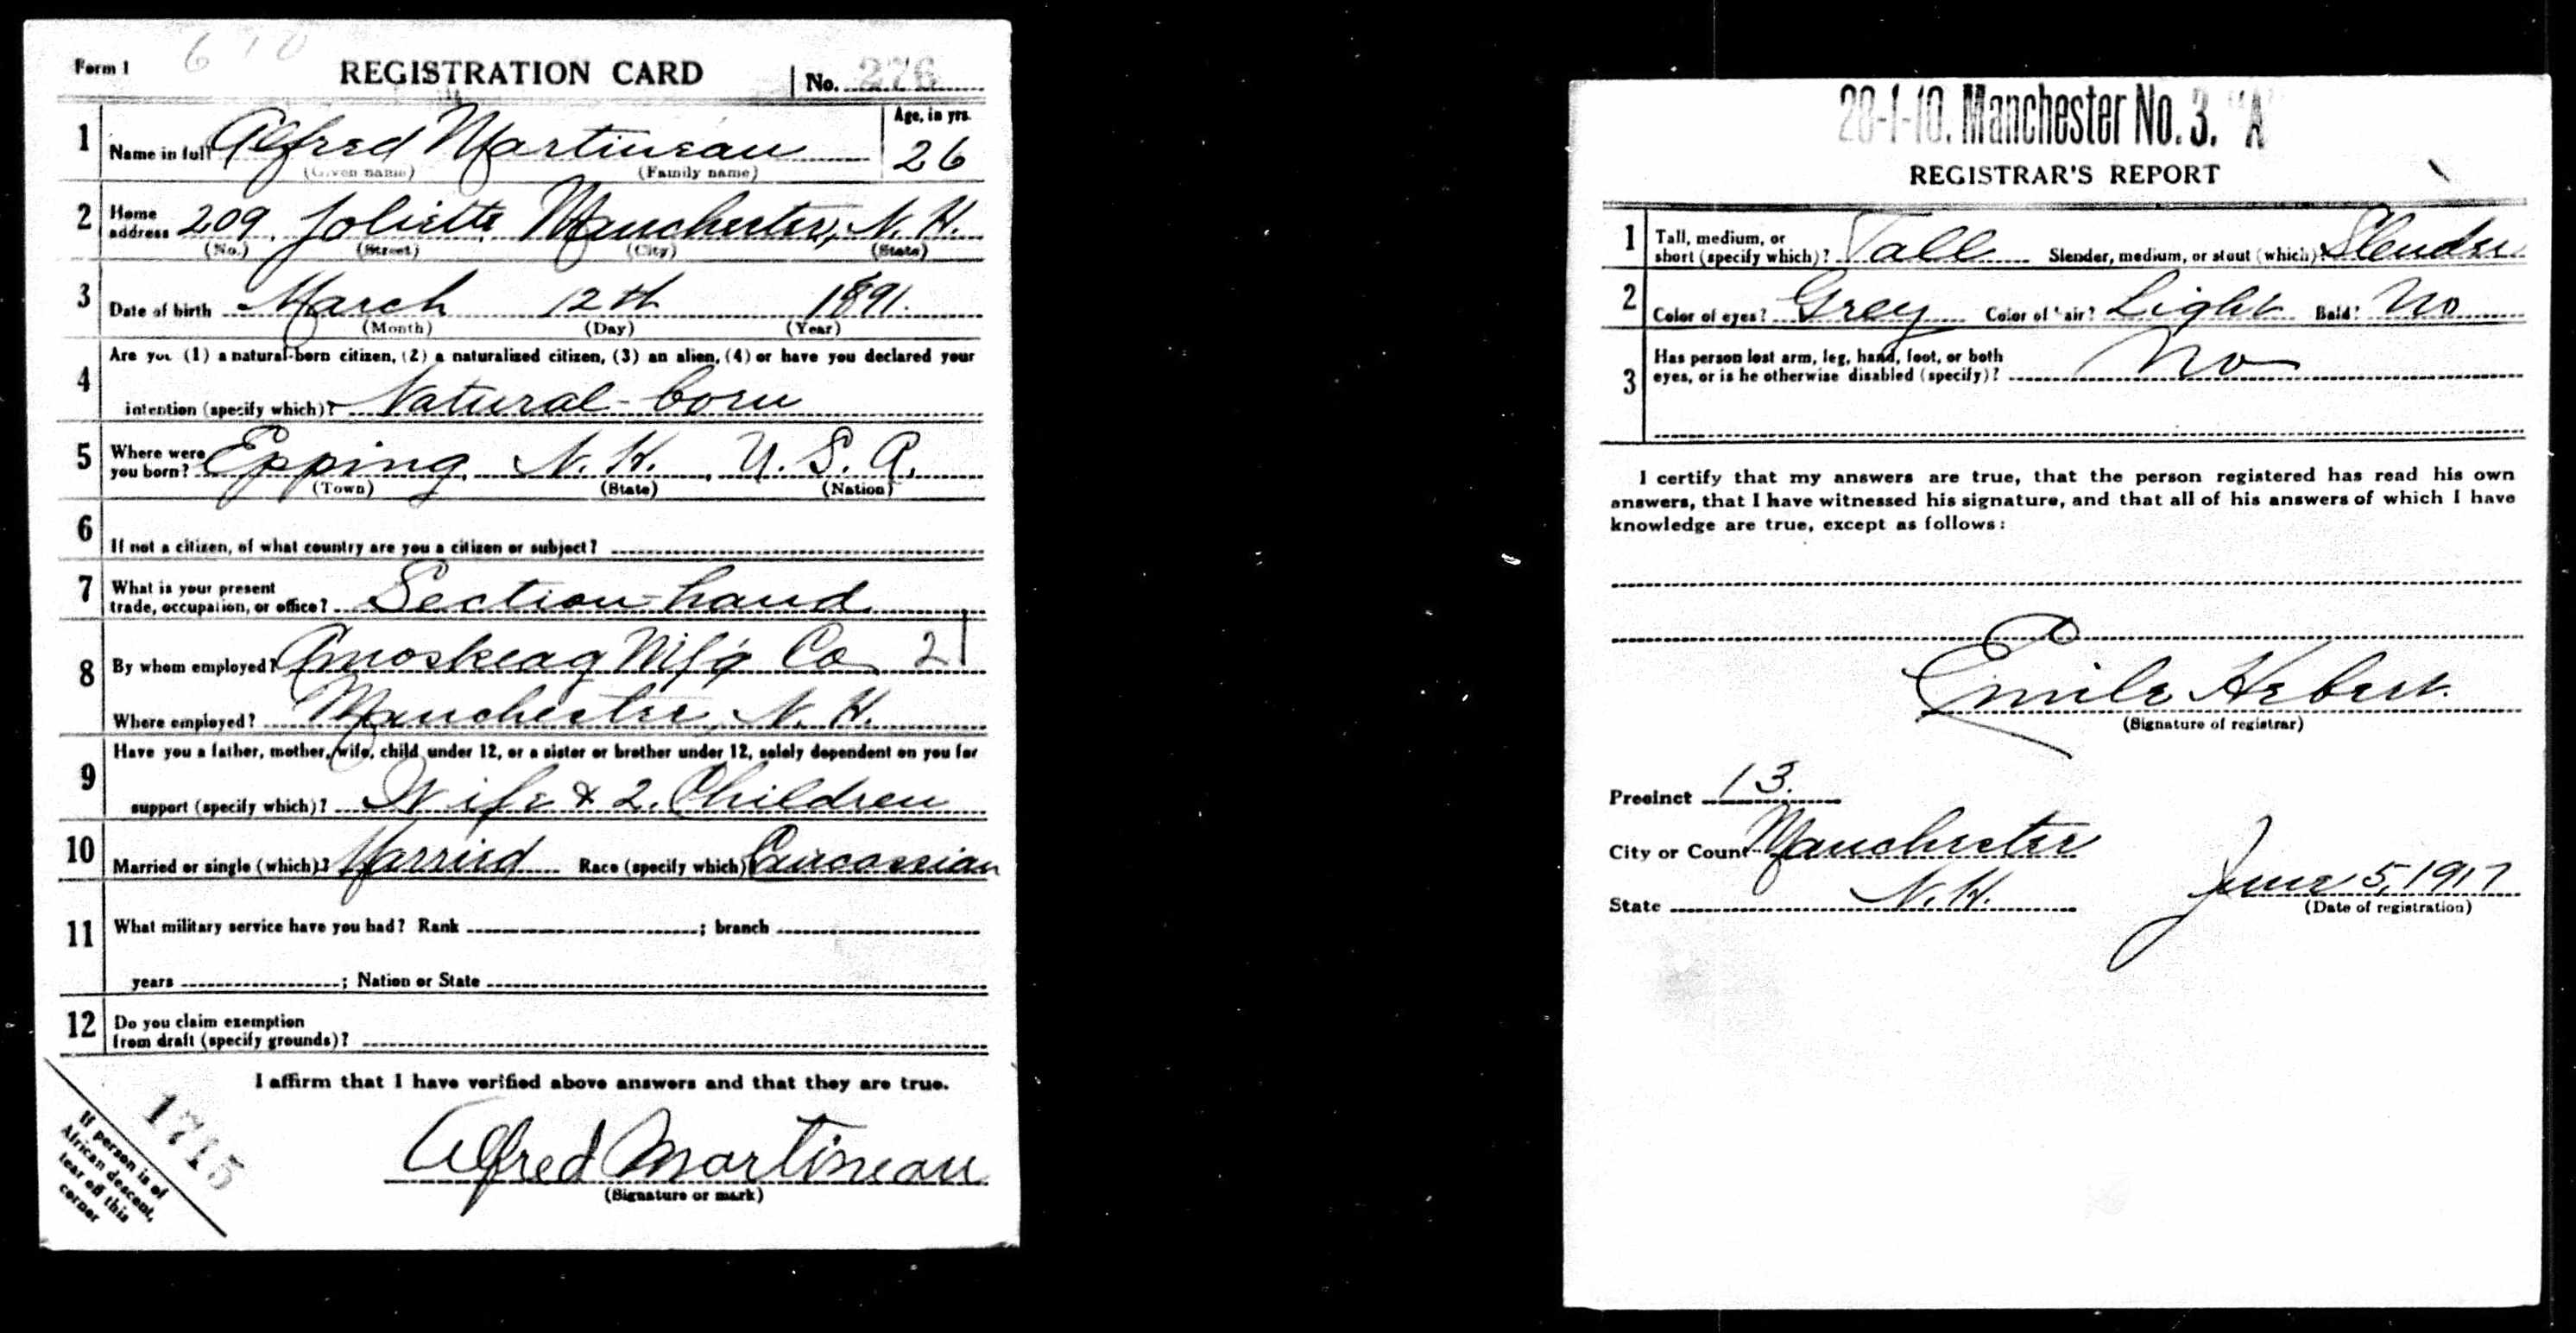 Form 1 REGISTRATION CARD No. 276
1 Name in full Alfred Martineau Age, in yrs. 26
(Given name) (Family name)
2 Home address 209 Joliette Manchester, N. H.
(No.) (Street) (City) (State)
3 Date of birth March 12th 1891.
(Month) (Day) (Year)
4 Are you (1) a natural-born citizen, (2) a naturalized citizen, (3) an alien, (4) or have you declared your
intention (specify which)? Natural-born
5 Where were you born? Epping, N. H., U. S. A.
(Town) (State) (Nation)
6 If not a citizen, of what country are you a citizen or subject?
7 What is your present
trade, occupation, or office? Section-hand
8 By whom employed? Amoskeag Mf'g Co 21
Where employed? Manchester, N. H.
9 Have you a father, mother, wife, child under 12, or a sister or brother under 12, solely dependent on you for
support (specify which)? Wife & 2. Children
10 Married or single (which)? Married Race (specify which) Caucassian
11 What military service have you had? Rank ; branch
years ; Nation or State
12 Do you claim exemption
from draft (specify grounds)?
I affirm that I have verified above answers and that they are true.
Alfred Martineau
(Signature or mark)
1715
If person is of
African descent,
tear off this
corner
28-1-10. Manchester No. 3. "A"
REGISTRAR'S REPORT
1 Tall, medium, or
short (specify which)? Tall Slender, medium, or stout (which)? Slender
2 Color of eyes? Grey Color of hair? Light Bald? No
3 Has person lost arm, leg, hand, foot, or both
eyes, or is he otherwise disabled (specify)? No
I certify that my answers are true, that the person registered has read his own
answers, that I have witnessed his signature, and that all of his answers of which I have
knowledge are true, except as follows:
Emile Hebert.
(Signature of registrar)
Precinct 13.
City or County Manchester
State N. H. June 5, 1917
(Date of registration)